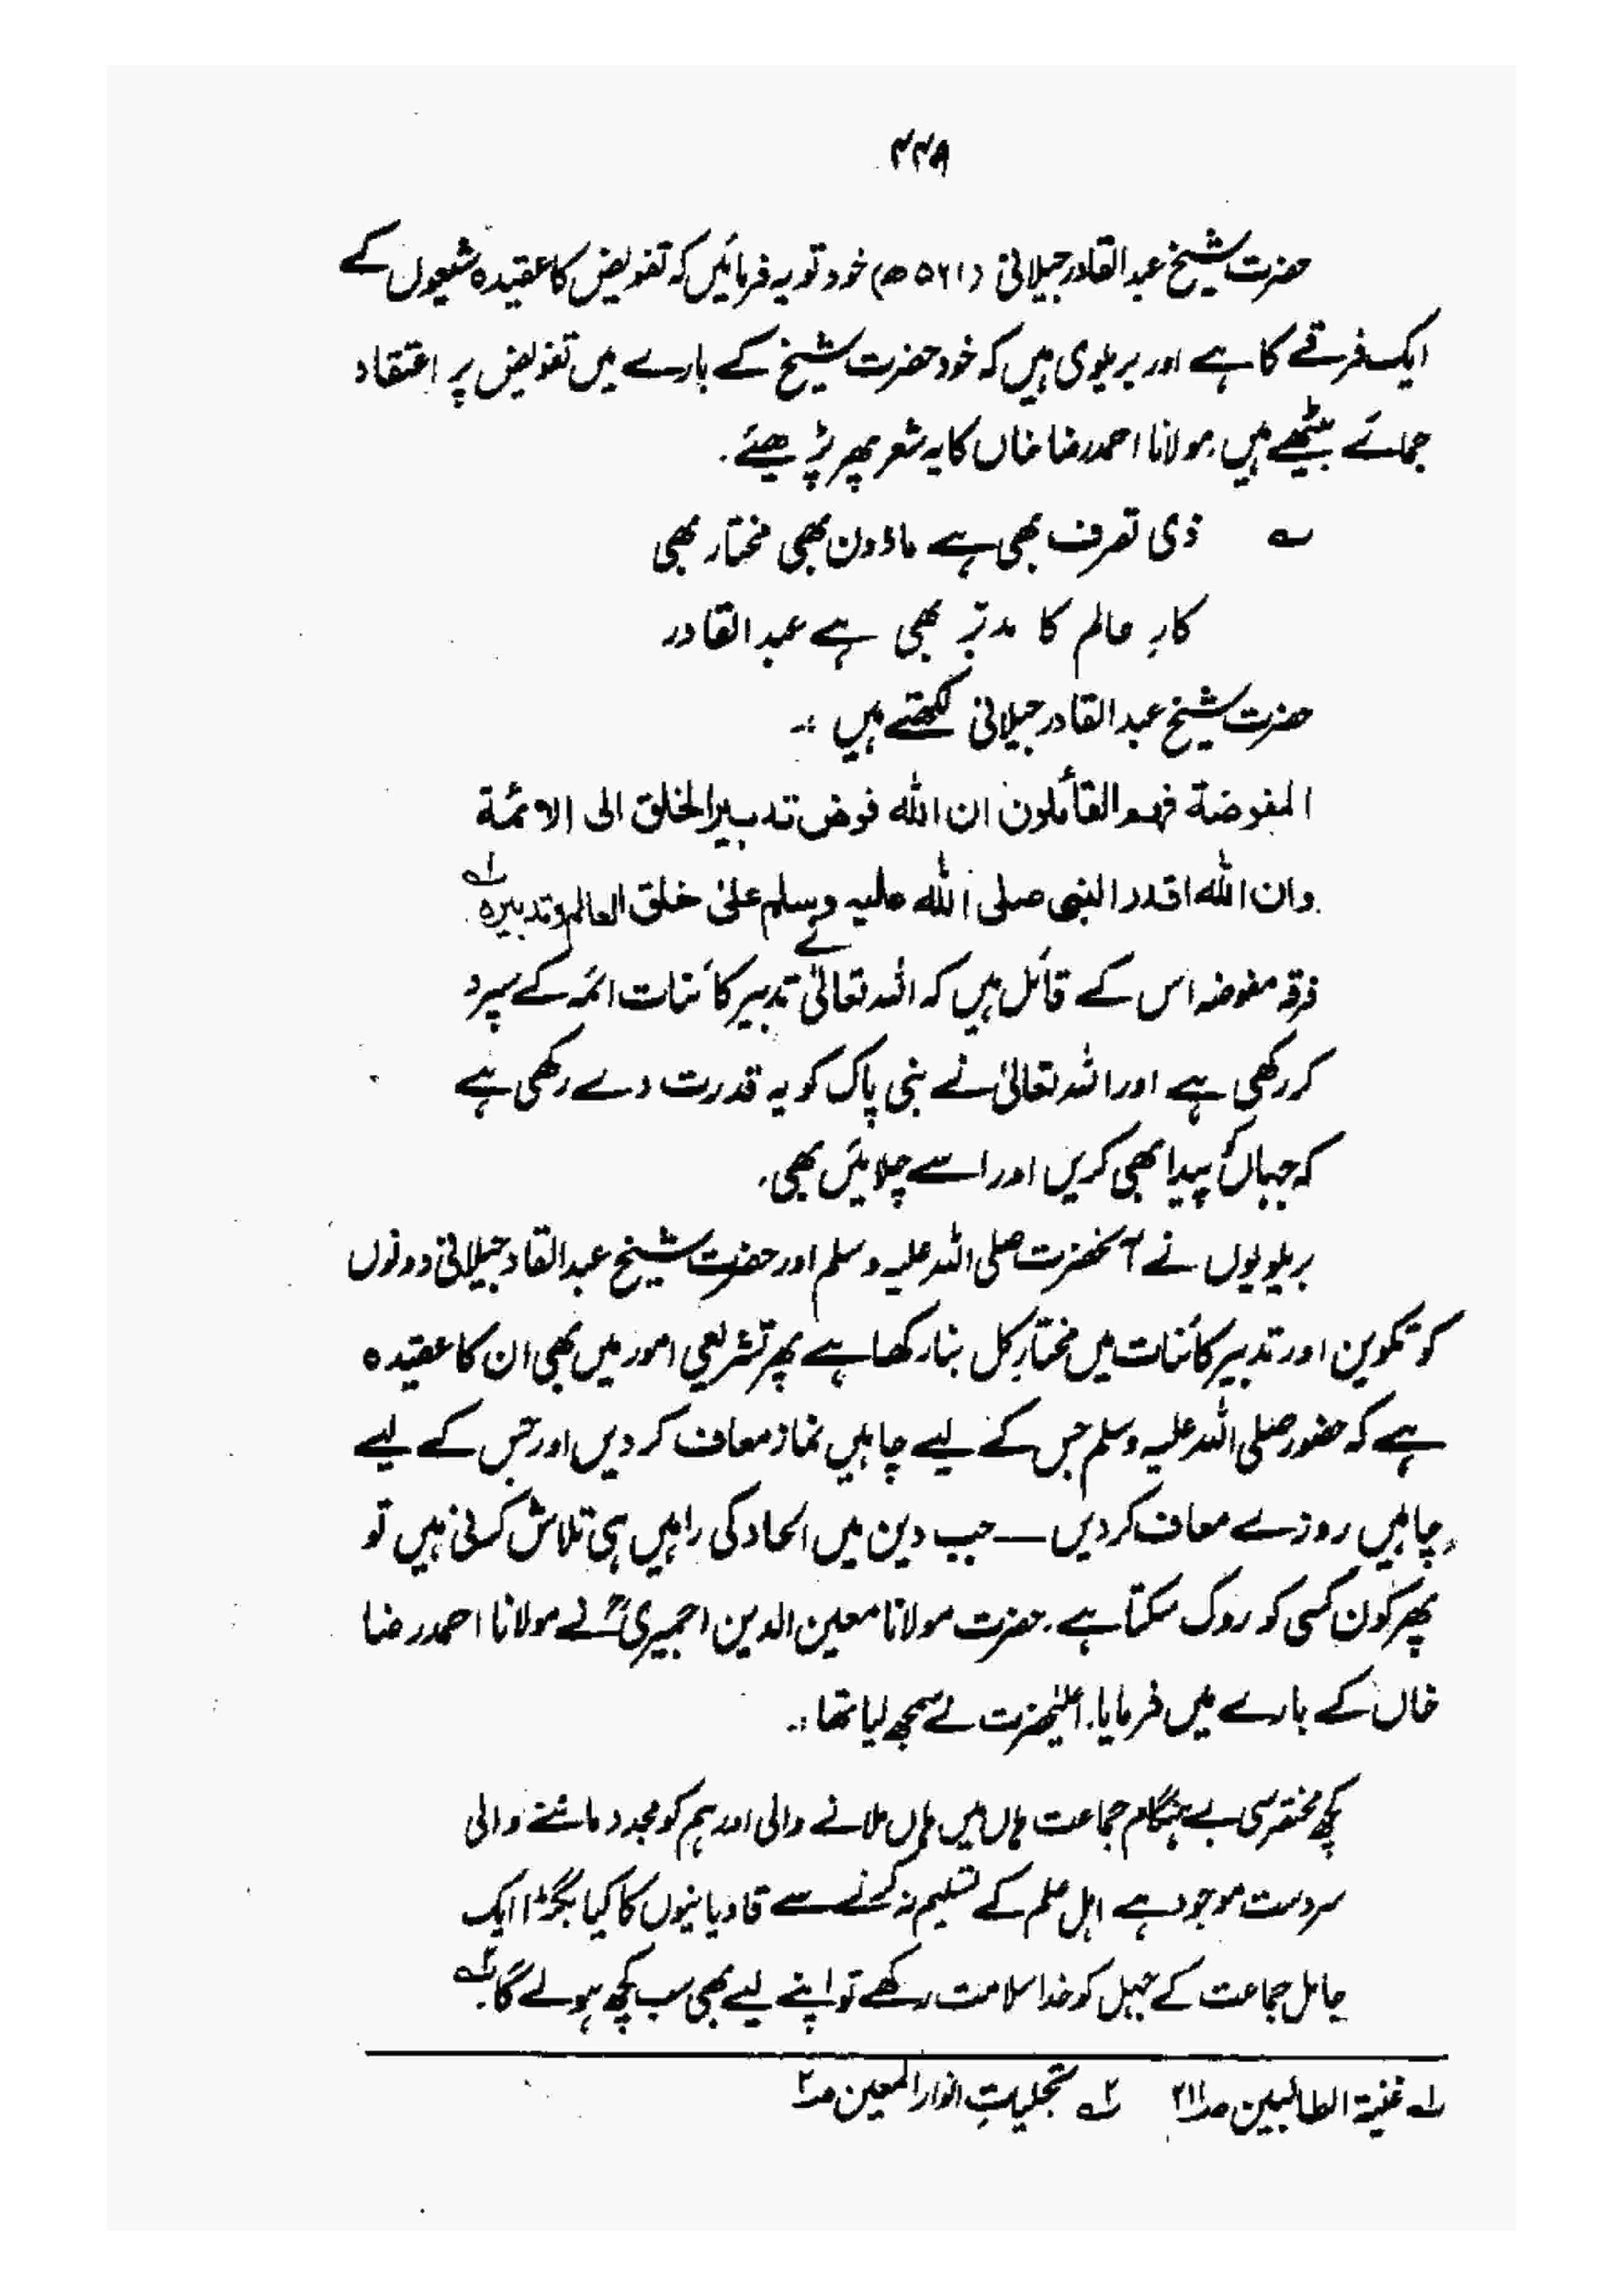 ۲۲۸
حضرت شیخ عبدالقادر جیلانی (۵۶۱ ھ) خود تو یہ فرمائیں کہ تفویض کا عقیدہ شیعوں کے
ایک فرقے کا ہے اور بریلوی ہیں کہ خود حضرت شیخ کے بارے میں تفویض پر اعتقاد
جمائے بیٹھے ہیں. مولانا احمد رضا خاں کا یہ شعر پھر پڑھیئے.
؎ ذی تصرف بھی ہے ماذون بھی مختار بھی
کارِ عالم کا مدبّر بھی ہے عبدالقادر
حضرت شیخ عبدالقادر جیلانی لکھتے ہیں :-
المفوضة فهم القائلون ان الله فوض تدبير الخلق الى الائمة
وان الله اقدر النبی صلی الله علیه وسلم علیٰ خلق العالم وتدبیره. ؎۱
فرقہ مفوضہ اس کے قائل ہیں کہ اللہ تعالیٰ نے تدبیر کائنات ائمہ کے سپرد
کر رکھی ہے اور اللہ تعالیٰ نے نبی پاک کو یہ قدرت دے رکھی ہے
کہ جہاں کو پیدا بھی کریں اور اسے چلائیں بھی.
بریلویوں نے آنحضرت صلی اللہ علیہ وسلم اور حضرت شیخ عبدالقادر جیلانی دونوں
کو تکوین اور تدبیر کائنات میں مختارِ کل بنا رکھا ہے پھر تشریعی امور میں بھی ان کا عقیدہ
ہے کہ حضور صلی اللہ علیہ وسلم جس کے لیے چاہیں نماز معاف کر دیں اور جس کے لیے
چاہیں روزے معاف کر دیں — جب دین میں الحاد کی راہیں ہی تلاش کرنی ہیں تو
پھر کون کسی کو روک سکتا ہے. حضرت مولانا معین الدین اجمیریؒ نے مولانا احمد رضا
خاں کے بارے میں فرمایا. اعلیٰحضرت نے سمجھ لیا تھا :-
کچھ مختصر سی بے ہنگام جماعت ہاں میں ہاں ملانے والی اور ہم کو مجدد ماننے والی
سردست موجود ہے اہل علم کے تسلیم نہ کرنے سے قادیانیوں کا کیا بگڑا ایک
جاہل جماعت کے جہل کو خدا سلامت رکھے تو اپنے لیے بھی سب کچھ ہولے گا. ؎۲
؎۱ غنیۃ الطالبین صا۲۱ ؎۲ تجلیاتِ انوار المعین ص۲